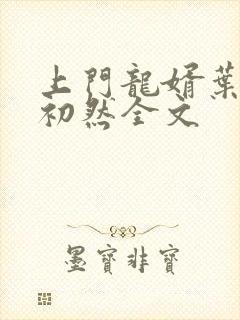 上門龍婿葉
初然全文
墨寶非寶